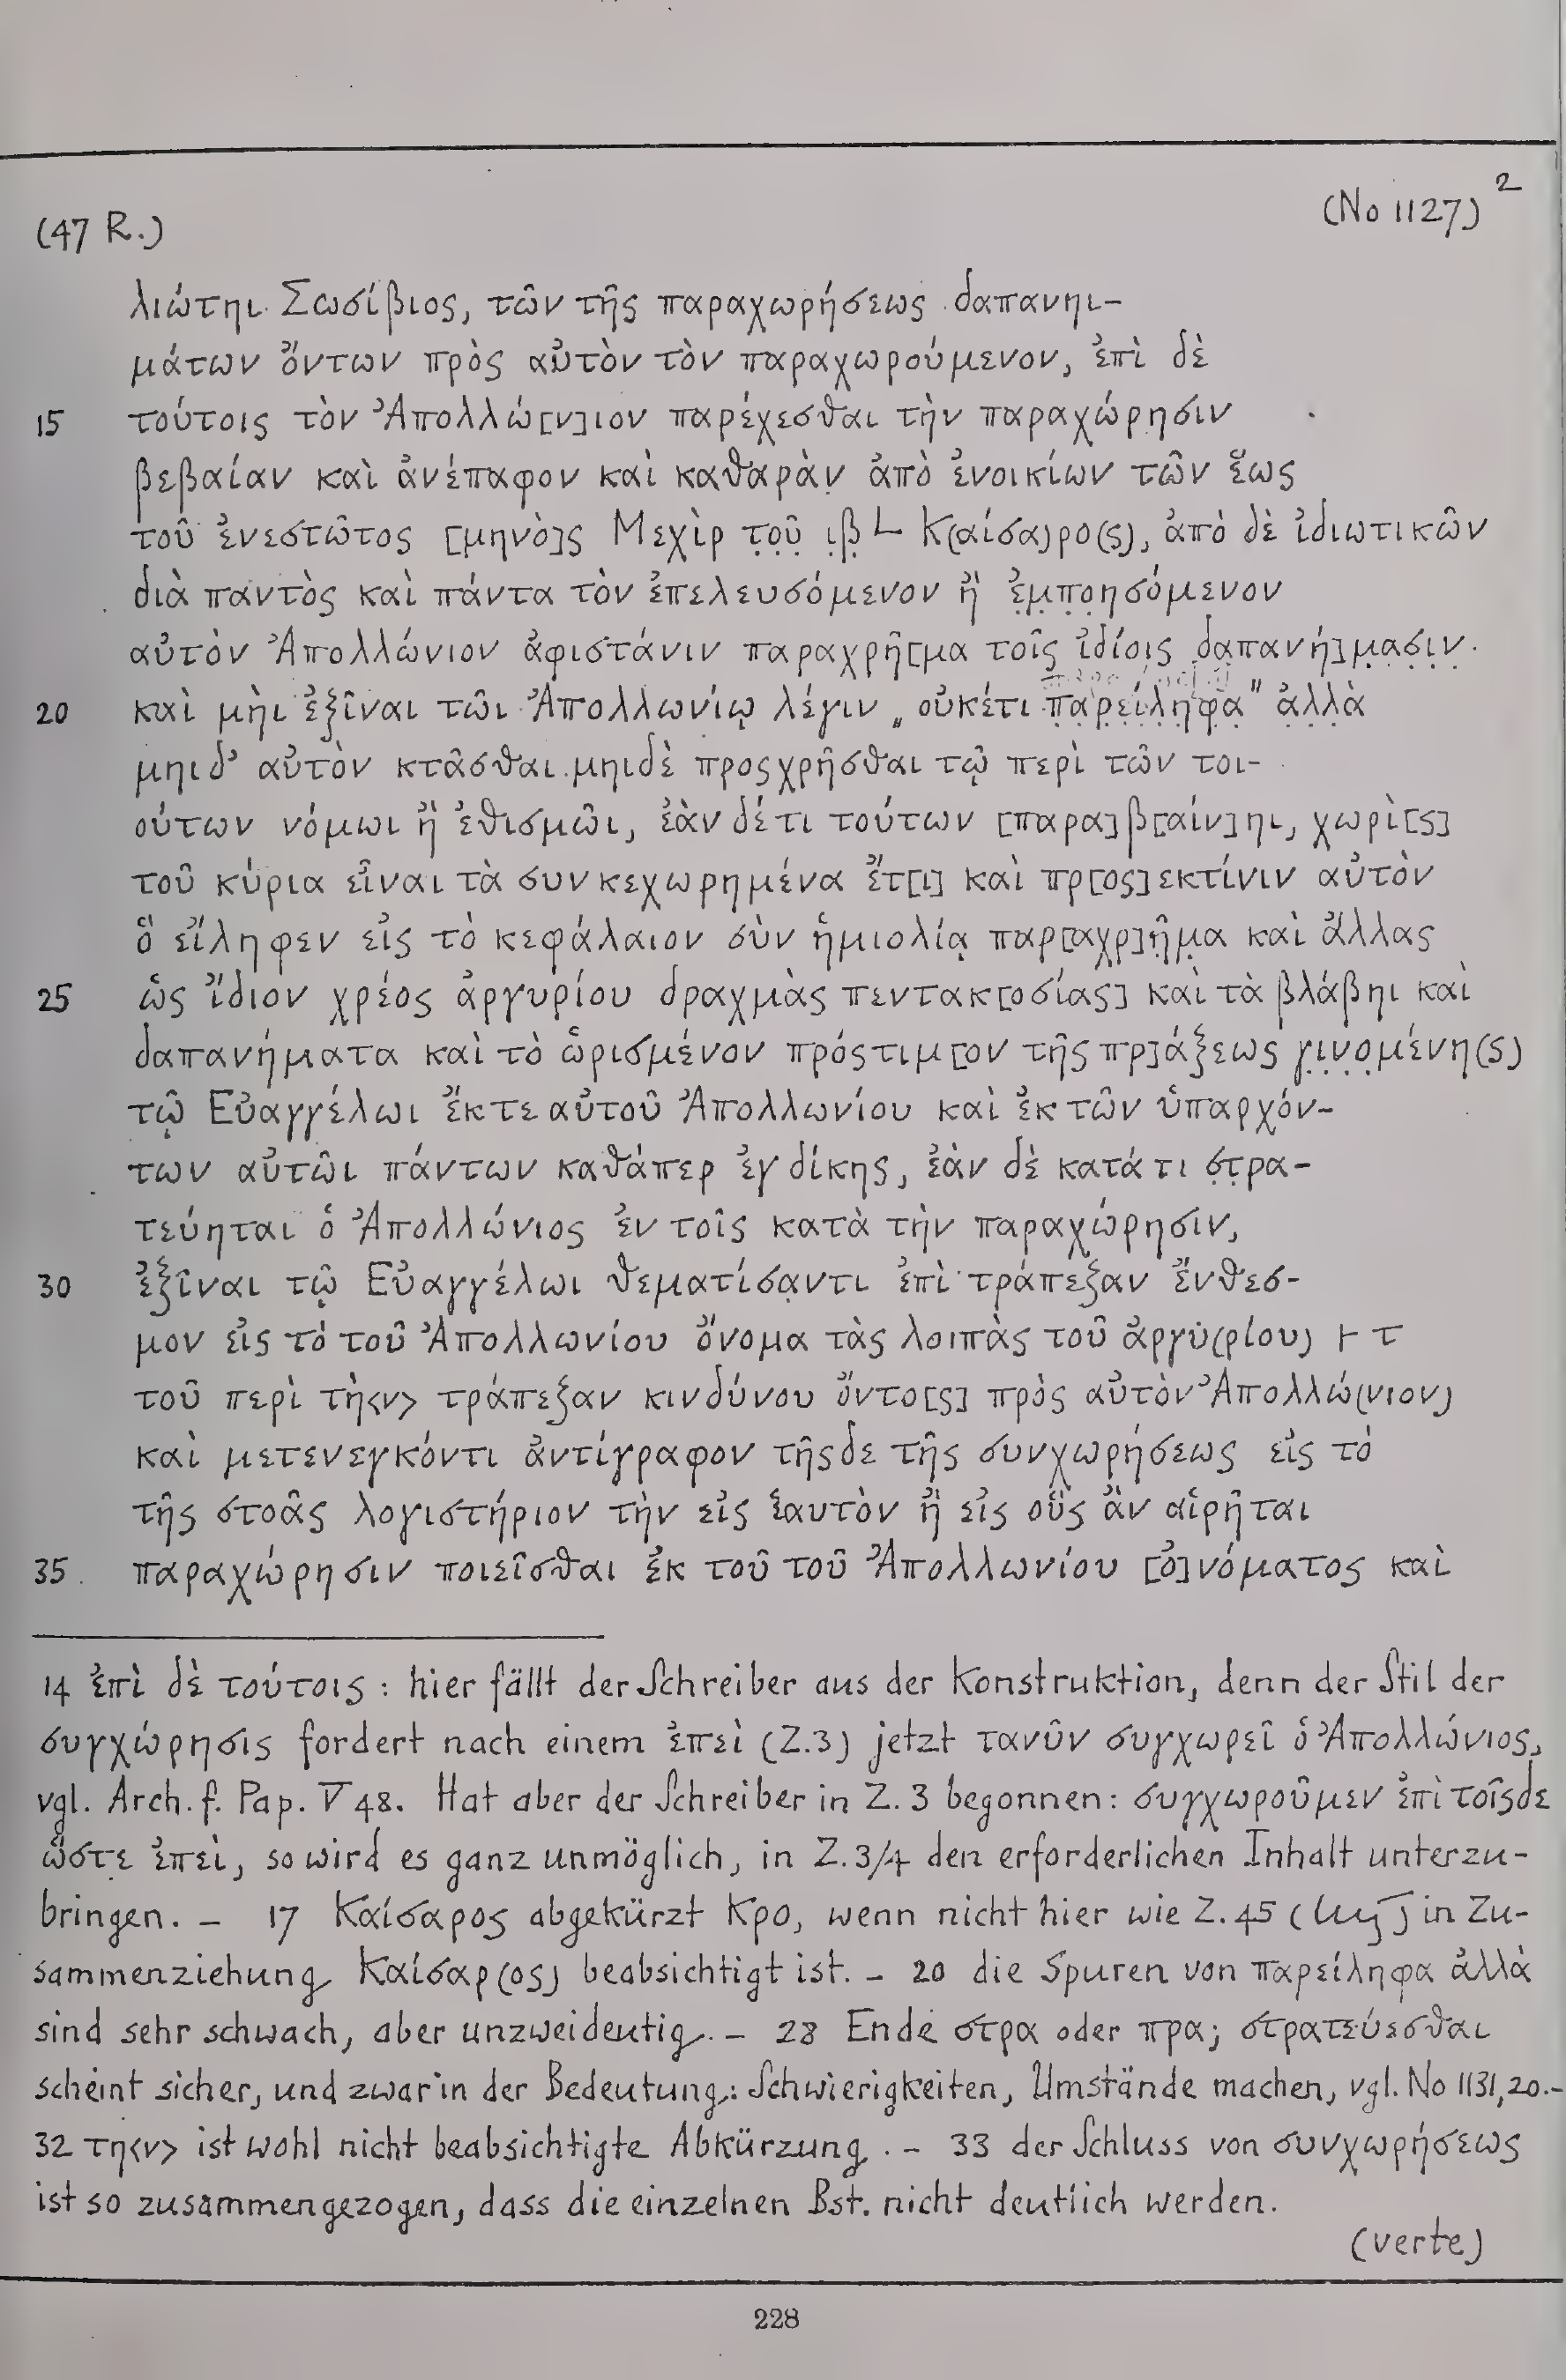 (No 1127) 2
(47 R.)
λιώτηι Σωσίβιος, τῶν τῆς παραχωρήσεως δαπανηι-
μάτων ὄντων πρὸς αὐτὸν τὸν παραχωρούμενον, ἐπὶ δὲ
15 τούτοις τὸν Ἀπολλώ[ν]ιον παρέχεσθαι τὴν παραχώρησιν
βεβαίαν καὶ ἀνέπαφον καὶ καθαρὰν ἀπὸ ἐνοικίων τῶν ἕως
τοῦ ἐνεστῶτος [μηνὸ]ς Μεχὶρ τ̣ο̣ῦ̣ ι̣β̣ L K(αίσα)ρο(ς), ἀπὸ δὲ ἰδιωτικῶν
διὰ παντὸς καὶ πάντα τὸν ἐπελευσόμενον ἢ ἐ̣μ̣π̣ο̣ησόμενον
αὐτὸν Ἀπολλώνιον ἀφιστάνιν παραχρῆ[μα τοῖς ἰδίοις δαπανή]μ̣α̣σ̣ι̣ν̣.
20 καὶ μὴι ἐξῖναι τῶι Ἀπολλωνίῳ λέγιν „οὐκέτι π̣α̣ρ̣ε̣ί̣λ̣η̣φ̣α̣" ἀ̣λ̣λ̣ὰ̣
μηιδ' αὐτὸν κτᾶσθαι μηιδὲ προςχρῆσθαι τῷ περὶ τῶν τοι-
ούτων νόμωι ἢ ἐθισμῶι, ἐὰν δέ τι τούτων [παρα]β[αίν]ηι, χωρὶ[ς]
τοῦ κύρια εἶναι τὰ συνκεχωρημένα ἔτ[ι] καὶ πρ[ος]εκτίνιν αὐτὸν
ὃ εἴληφεν εἰς τὸ κεφάλαιον σὺν ἡμιολίᾳ παρ[αχρ]ῆ̣μ̣α καὶ ἄλλας
25 ὡς ἴδιον χρέος ἀργυρίου δραχμὰς πεντακ[οσίας] καὶ τὰ βλάβηι καὶ
δαπανήματα καὶ τὸ ὡρισμένον πρόςτιμ[ον τῆς πρ]άξεως γ̣ι̣ν̣ο̣μένη(ς)
τῷ Εὐαγγέλωι ἔκ τε αὐτοῦ Ἀπολλωνίου καὶ ἐκ τῶν ὑπαρχόν-
των αὐτῶι πάντων καθάπερ ἐγ δίκης, ἐὰν δὲ κατά τι σ̣τ̣ρα-
τεύηται ὁ Ἀπολλώνιος ἐν τοῖς κατὰ τὴν παραχώρησιν,
30 ἐξῖναι τῷ Εὐαγγέλωι θεματίσα̣ντι ἐπὶ τράπεξαν ἔνθεσ-
μον εἰς τὸ τοῦ Ἀπολλωνίου ὄνομα τὰς λοιπὰς τοῦ ἀργυ(ρίου) ⊢ τ
τοῦ περὶ τὴ<ν> τράπεξαν κινδύνου ὄντο[ς] πρὸς αὐτὸν Ἀπολλώ(νιον)
καὶ μετενεγκόντι ἀντίγραφον τῆςδε τῆς συνχωρήσεως εἰς τὸ
τῆς στοᾶς λογιστήριον τὴν εἰς ἑαυτὸν ἢ εἰς οὓς ἂν αἱρῆται
35 παραχώρησιν ποιεῖσθαι ἐκ τοῦ τοῦ Ἀπολλωνίου [ὀ]νόματος καὶ
14 ἐπὶ δὲ τούτοις : hier fällt der Schreiber aus der Konstruktion, denn der Stil der
συγχώρησις fordert nach einem ἐπεὶ (Z.3) jetzt τανῦν συγχωρεῖ ὁ Ἀπολλώνιος,
vgl. Arch. f. Pap. V 48. Hat aber der Schreiber in Z. 3 begonnen: συγχωροῦμεν ἐπὶ τοῖςδε
ὥστε ἐπεὶ, so wird es ganz unmöglich, in Z. 3/4 den erforderlichen Inhalt unterzu-
bringen. – 17 Καίσαρος abgekürzt Κρο, wenn nicht hier wie Z. 45 in Zu-
sammenziehung Καίσαρ(ος) beabsichtigt ist. – 20 die Spuren von παρείληφα ἀλλὰ
sind sehr schwach, aber unzweideutig. – 28 Ende στρα oder πρα; στρατεύεσθαι
scheint sicher, und zwar in der Bedeutung: Schwierigkeiten, Umstände machen, vgl. No 1131, 20. –
32 τη<ν> ist wohl nicht beabsichtigte Abkürzung. – 33 der Schluss von συνχωρήσεως
ist so zusammengezogen, dass die einzelnen Bst. nicht deutlich werden.
(verte)
228